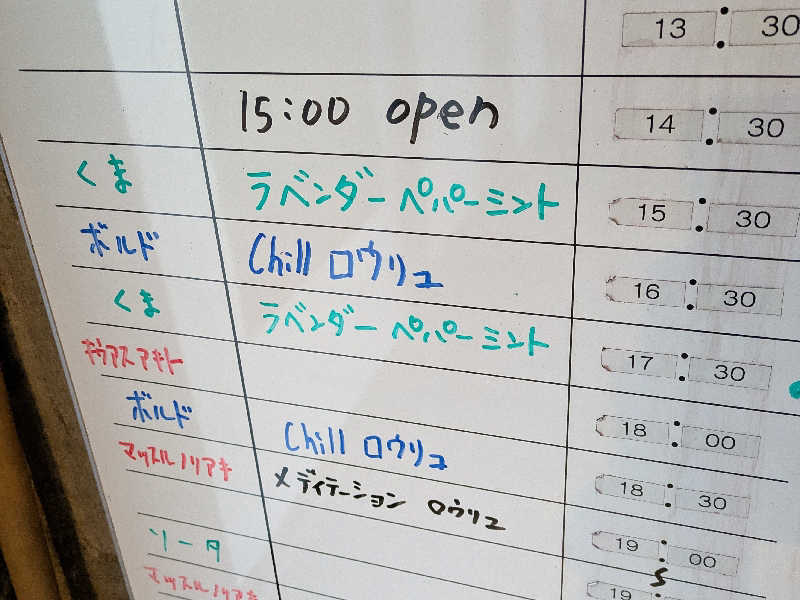 13:30
15:00 open 14:30
くま ラベンダーペパーミント 15:30
ボルド Chill ロウリュ 16:30
くま ラベンダーペパーミント 17:30
ギヴアスアキト 18:00
ボルド Chill ロウリュ 18:30
マッスルノリアキ メディテーション ロウリュ 19:00
ソータ 19
マッスルノリアキ